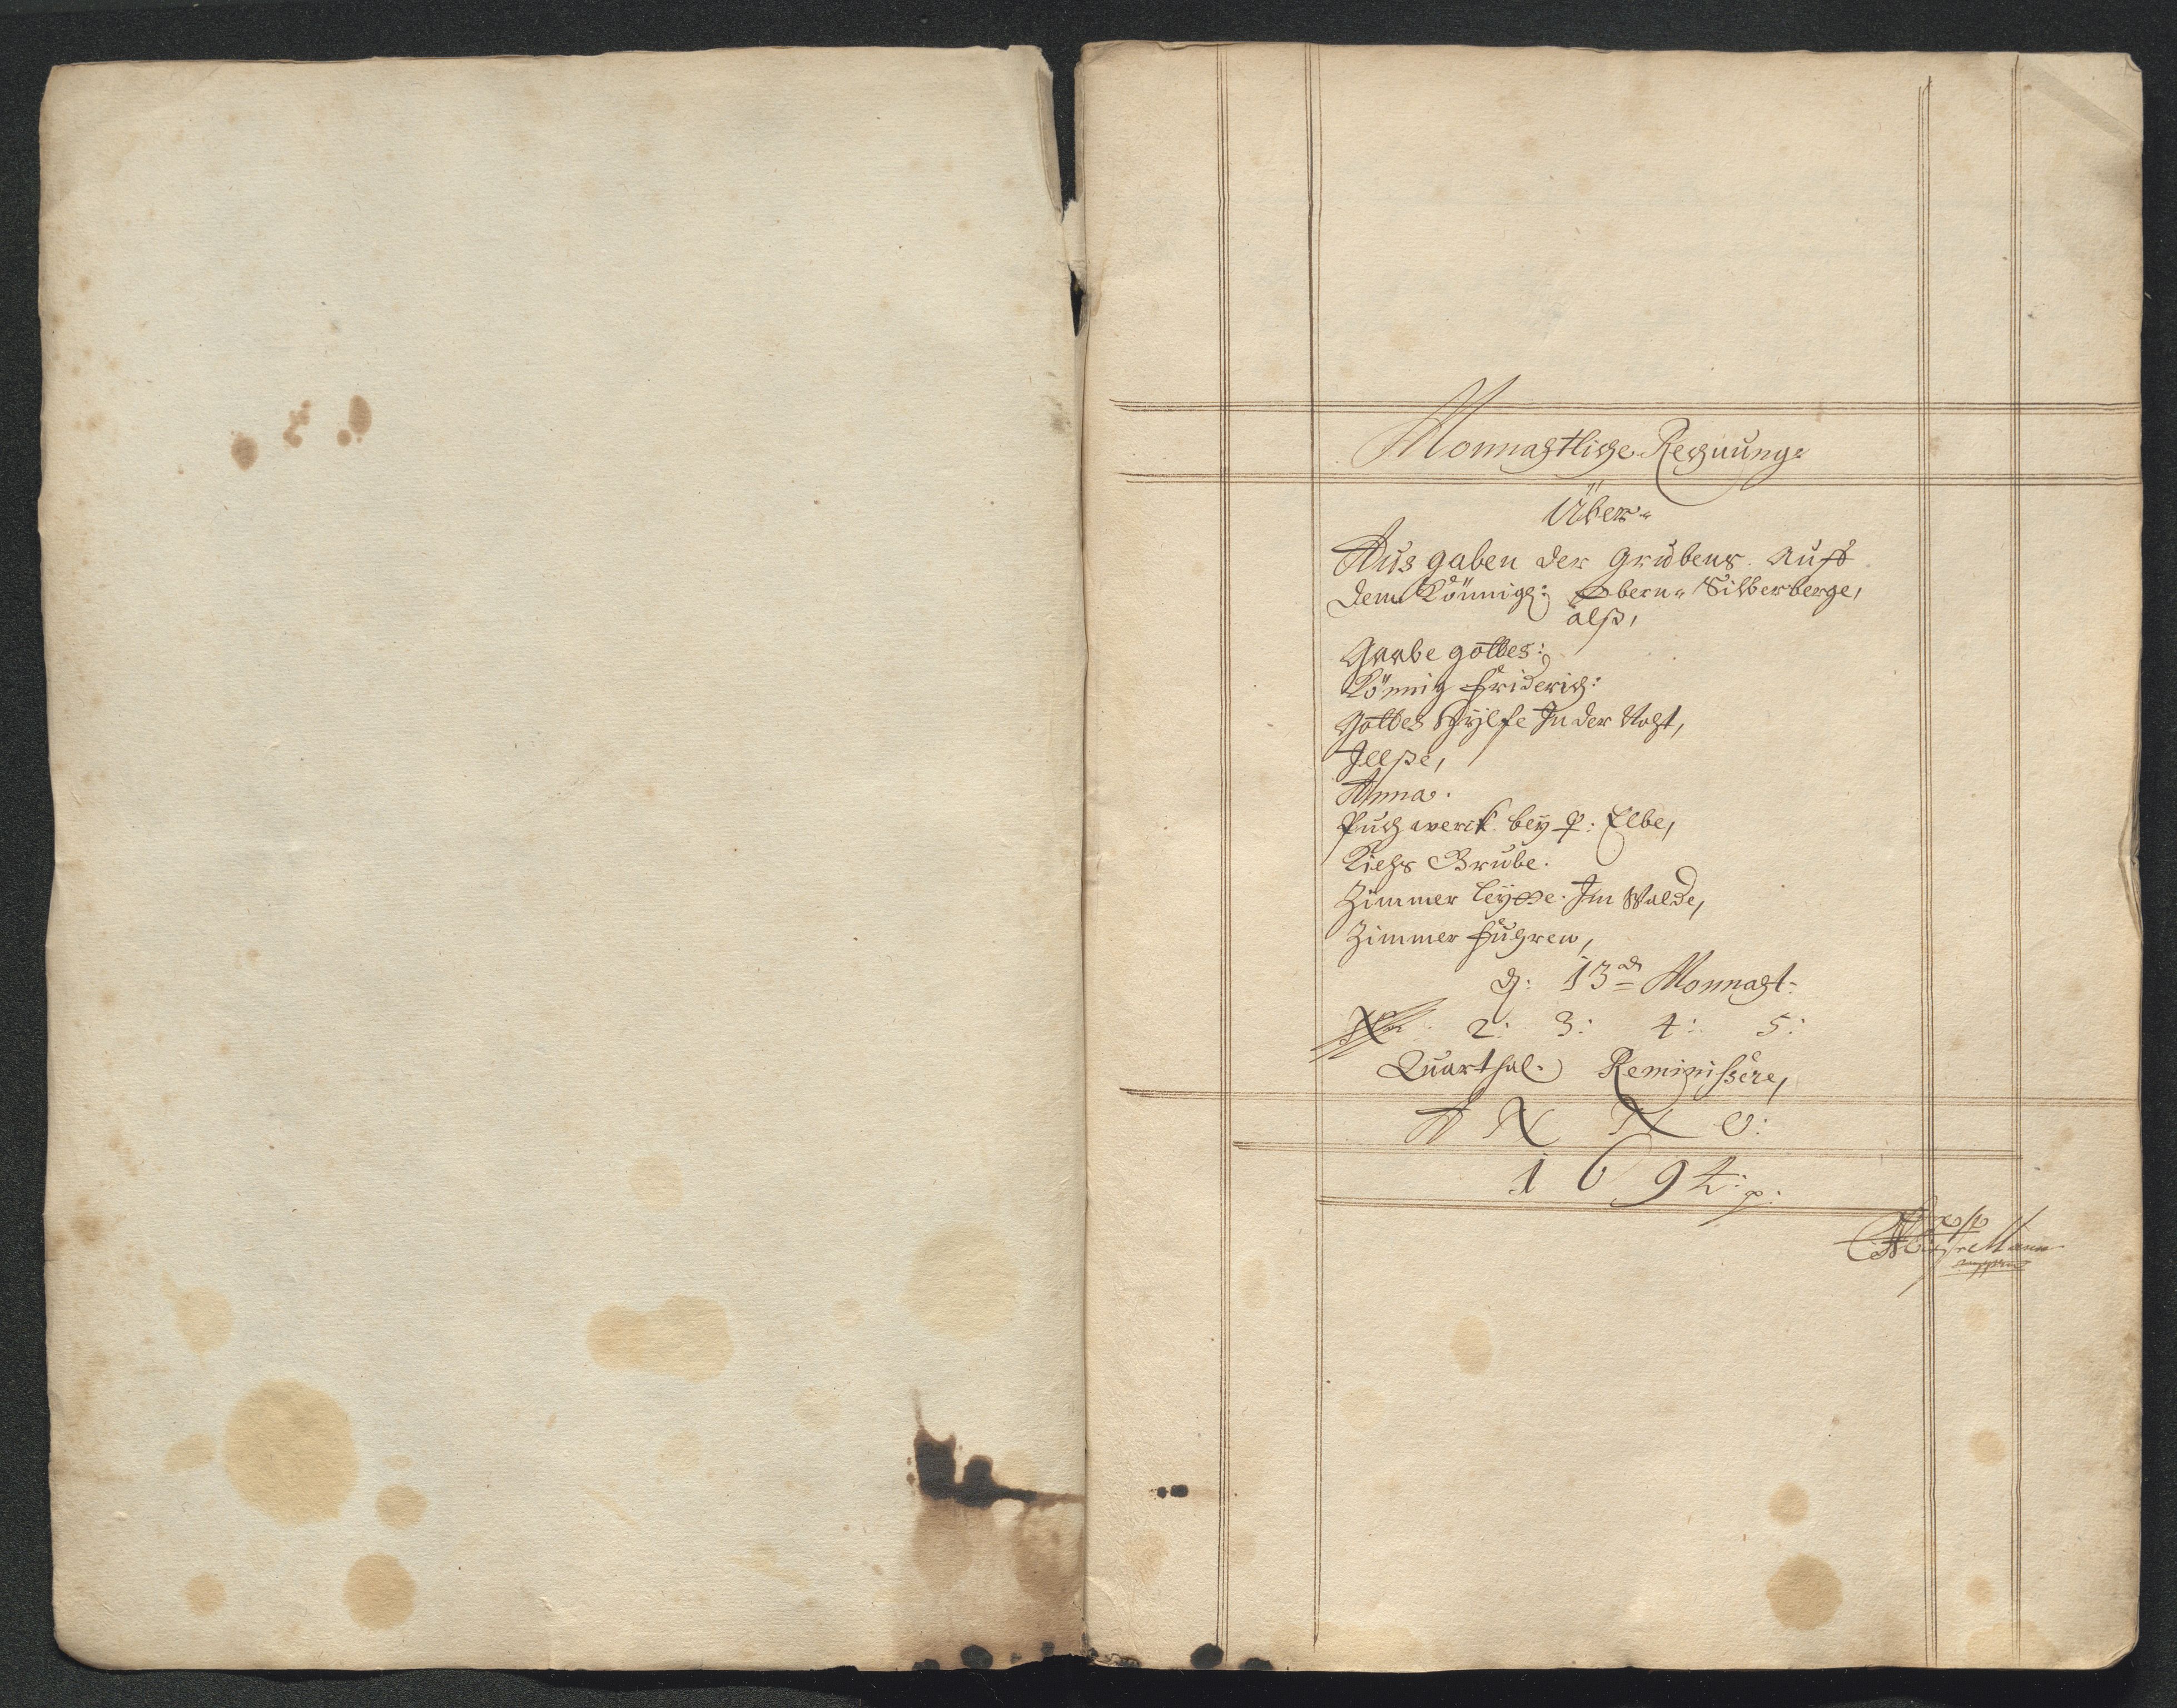 Monnahtliche Rechnung:
Über"
Aus gaben der Grubens. Auff
dem Könnigl: Obern" Silberberge,
alß,
Gaabe gottes:
Könnig Friderich:
Gottes Hylfe In der Noht,
Jllße,
Anna.
Puchwerck bey P: Elbe,
Kiehs Grube.
Zimmer leytte. Im Walde,
Zimmer Fuhren,
d: 13 Monnaht:
2: 3: 4: 5:
Quarthal: Reminissere,
A N N O:
1 6 9 4: p: